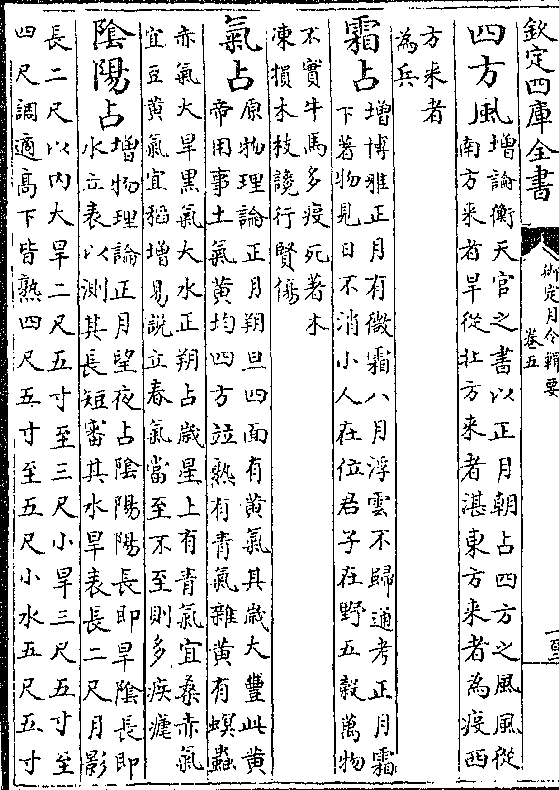 欽定四庫全書
御定月令輯要
卷五
四方風
增論衡天官之書以正月朝占四方之風風從
南方來者旱從北方來者湛東方來者為疫西
方來者
為兵
霜占
增博雅正月有微霜八月浮雲不歸通考正月霜
下著物見日不消小人在位君子在野五穀萬物
不實牛馬多疫死著木
凍損木枝讒行賢傷
氣占
原物理論正月朔旦四面有黃氣其歲大豐此黃
帝用事土氣黃均四方竝熟有青氣雜黃有螟蟲
赤氣大旱黑氣大水正朔占歲星上有青氣宜桑赤氣
宜豆黃氣宜稻增易說立春氣當至不至則多疾瘧
陰陽占
增物理論正月望夜占陰陽陽長即旱陰長即
水立表以測其長短審其水旱表長二尺月影
長二尺以內大旱二尺五寸至三尺小旱三尺五寸至
四尺調適高下皆熟四尺五寸至五尺小水五尺五寸